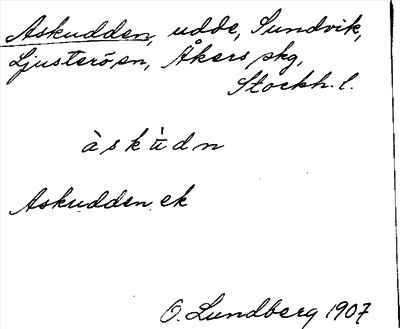 Askudden, udde, Sundvik,
Ljusterö sn, Åkers skg,
Stockh. l.
àskùdn
Askudden ek
O. Lundberg 1907